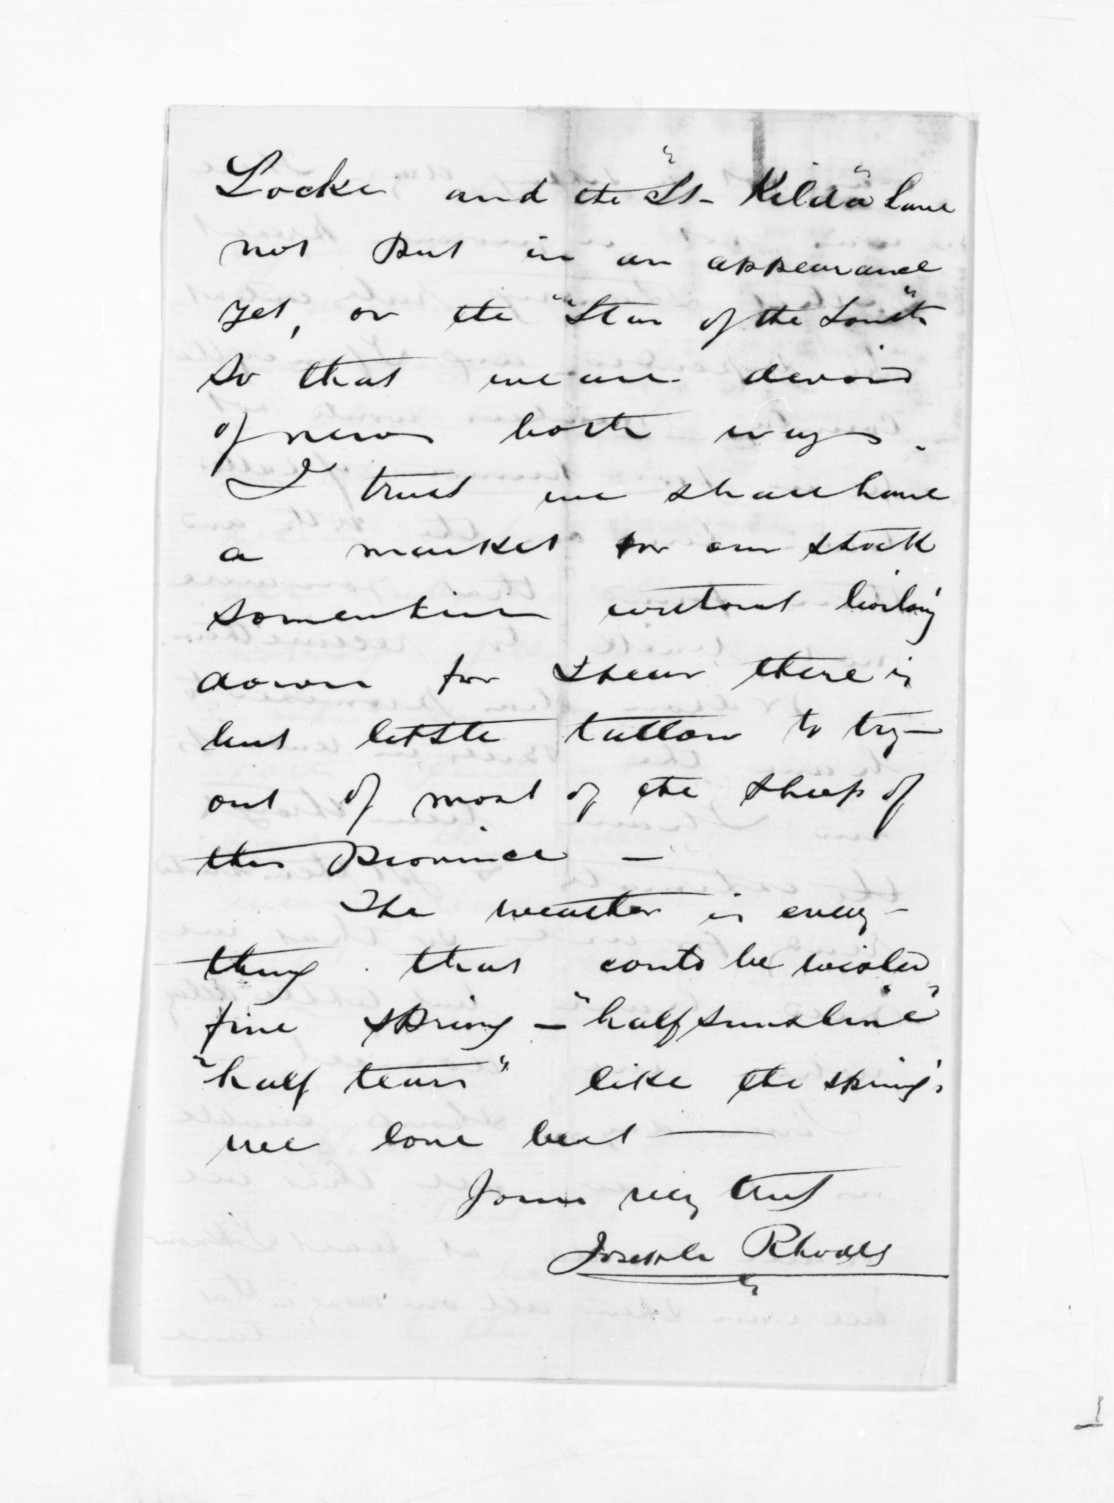 Locke and the "St- Kilda" have
not put in an appearance
yet, or the "Star of the South"
so that we are devoid
of news both ways.
I trust we shall have
a market for our stock
sometime without boiling
down for I hear there is
but little tallow to try-
out of most of the sheep of
this Province -
The weather is every-
thing that could be wished
fine spring - "half sunshine"
"half tears" like the spring's
we love best -
Yours very truly
Joseph Rhodes